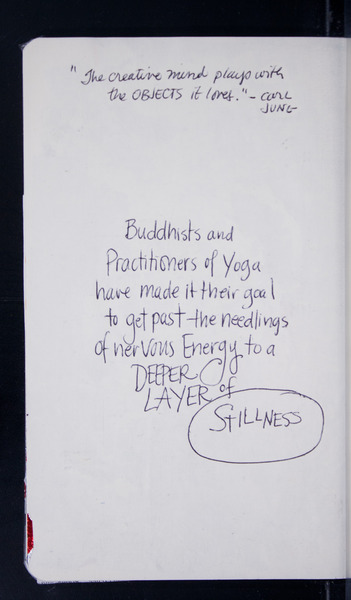 "The creative mind plays with
the OBJECTS it loves." - Carl
JUNG
Buddhists and
Practitioners of Yoga
have made it their goal
to get past the needlings
of nervous Energy to a
DEEPER
LAYER of
StILLNESS